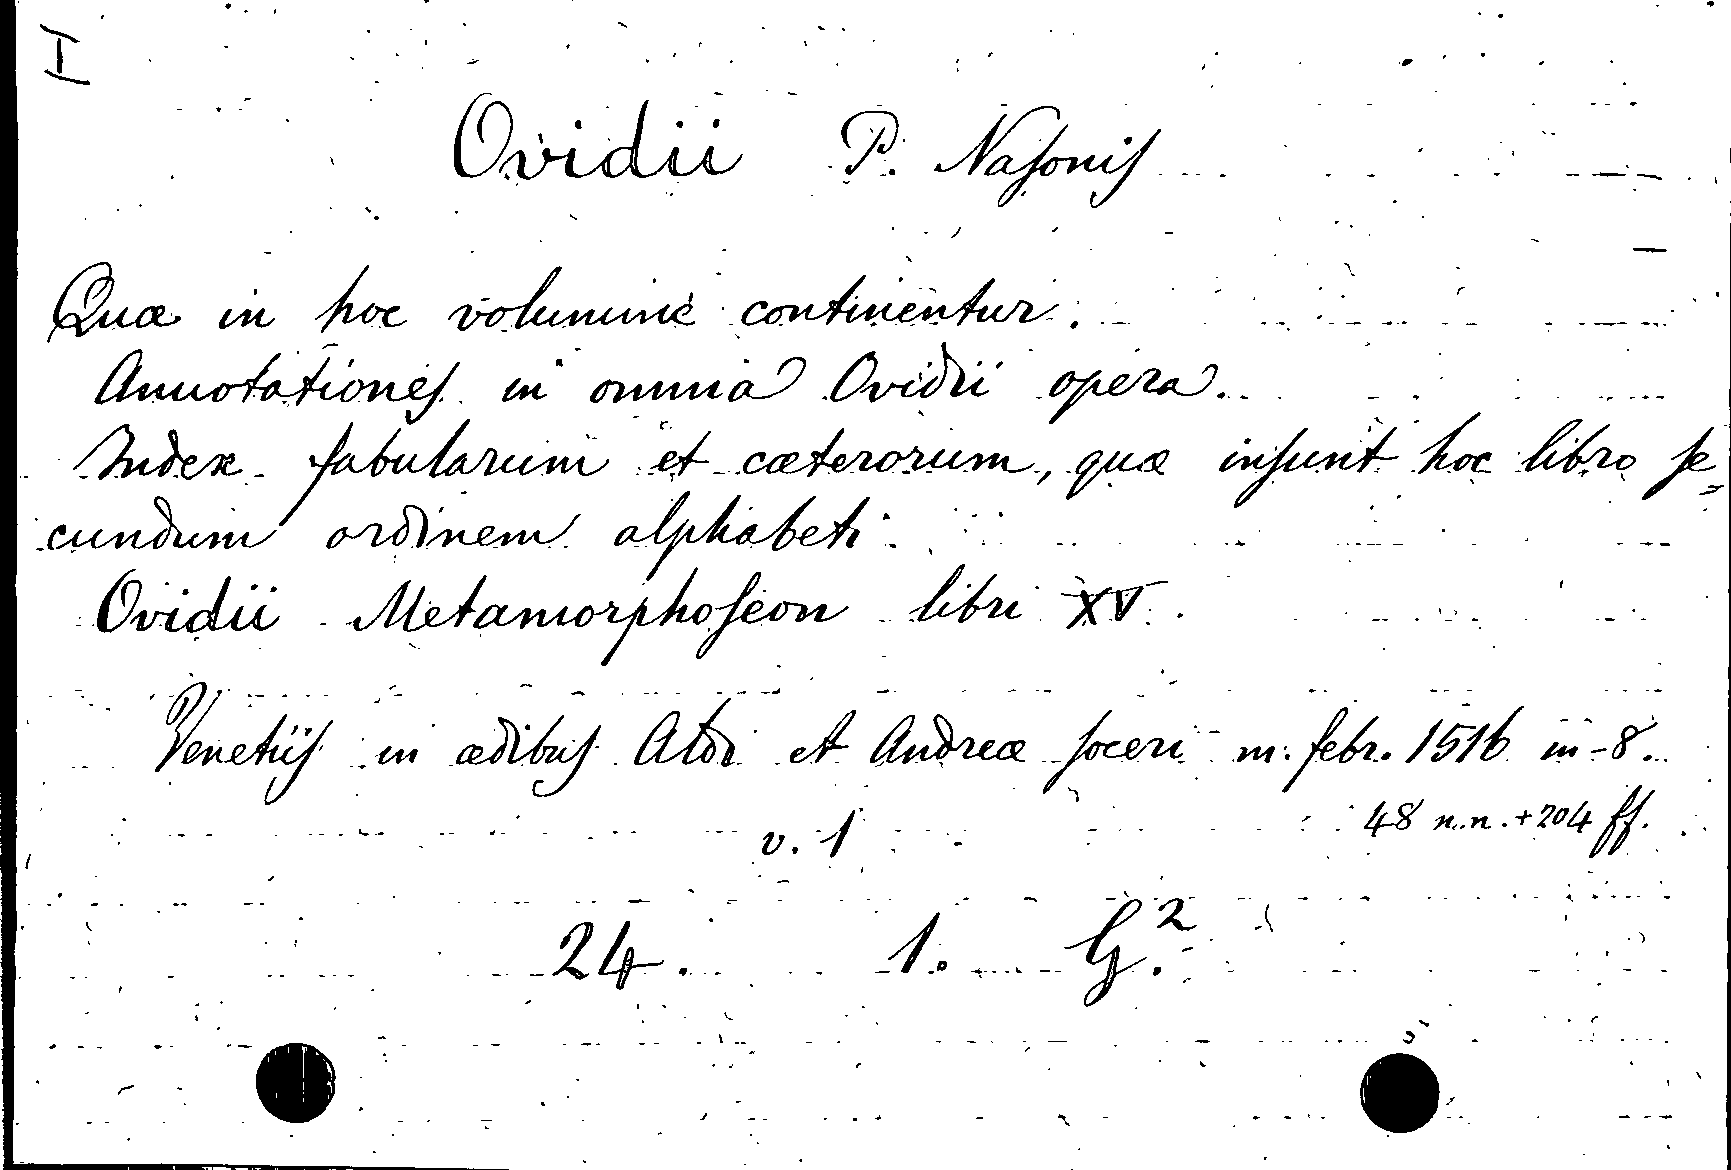 I
Ovidii P. Nasonis
Quæ in hoc volumine continentur.
Annotationes in omnia Ovidii opera.
Index fabularum et cæterorum, quæ insunt hoc libro se=
cundum ordinem alphabeti.
Ovidii Metamorphoseon libri XV.
Venetiis in ædibus Aldi et Andreæ soceri m. febr. 1516 in-8.
48 n.n. + 204 ff.
v. 1
24. 1. G.²